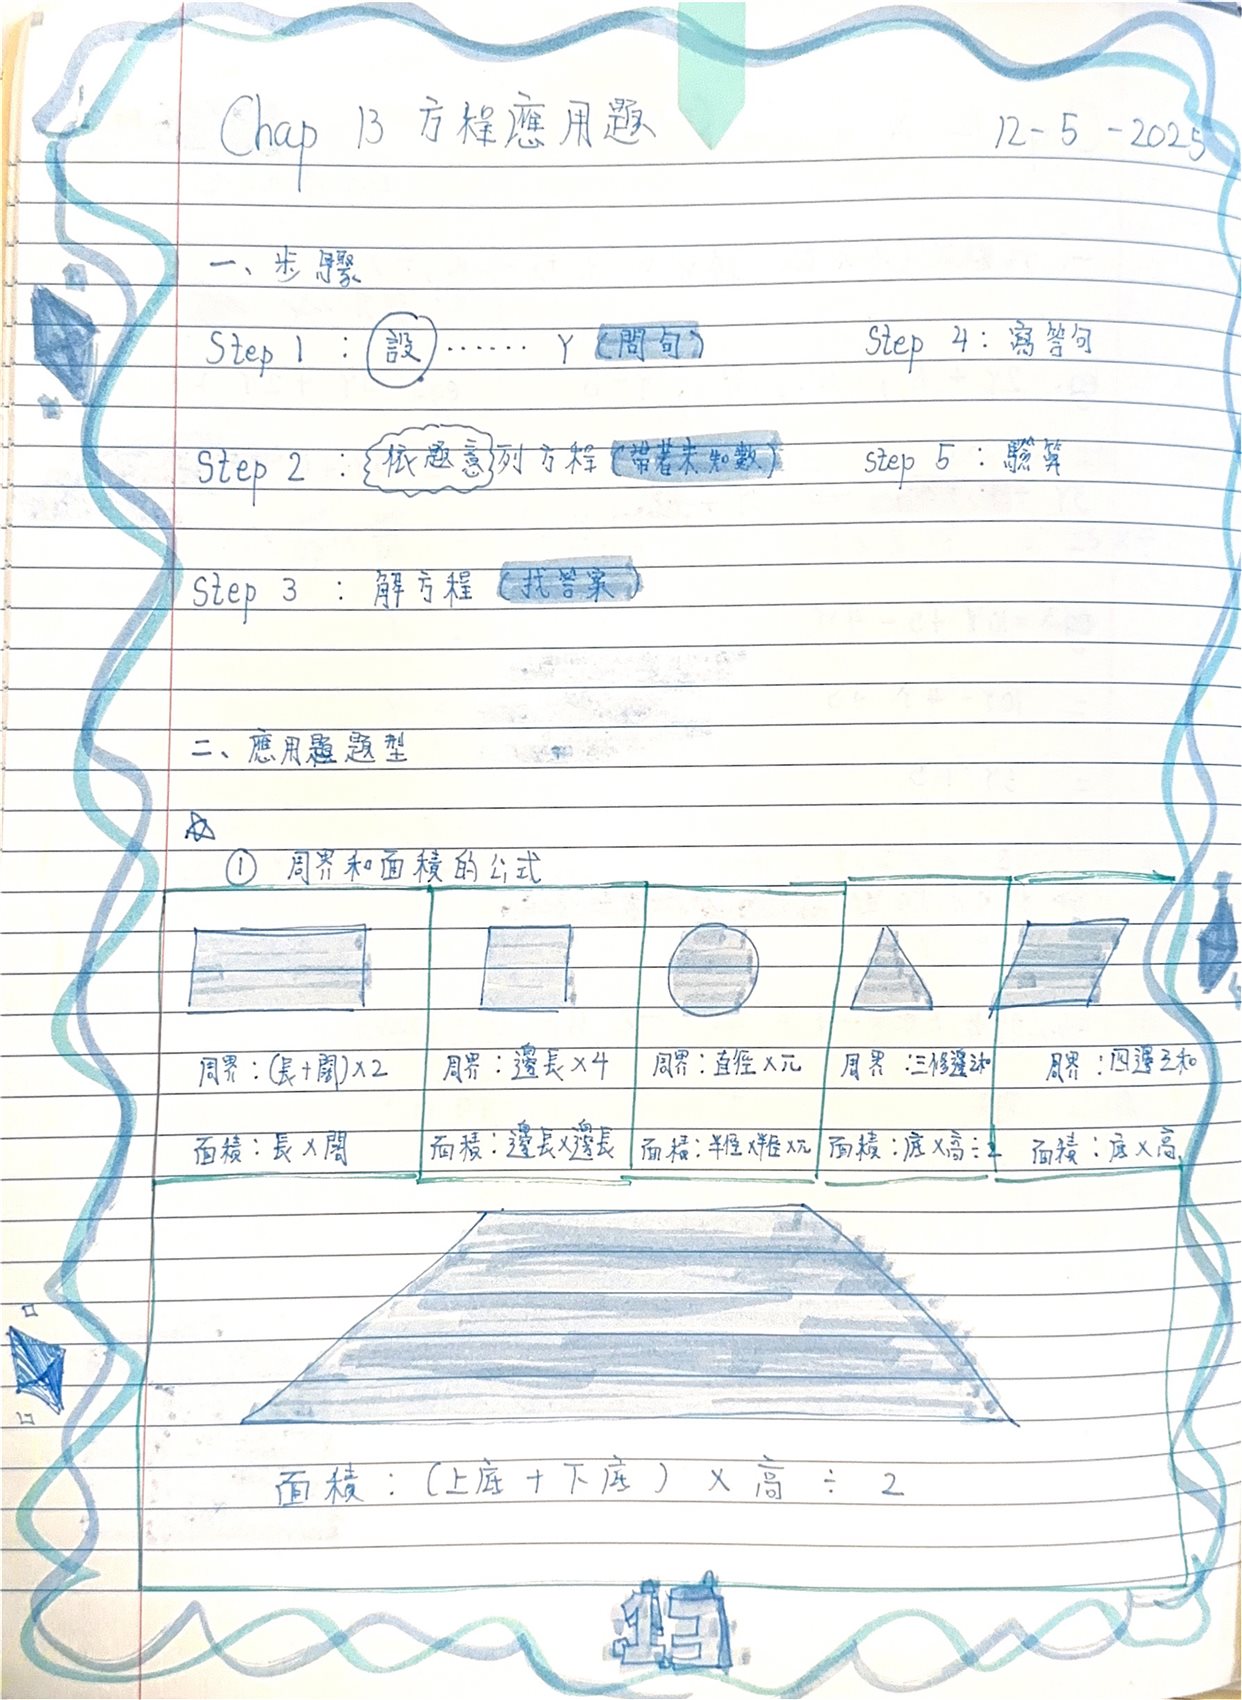 Chap 13 方程應用題
12-5-2025
一、步驟
Step 1 : 設 ...... Y (問句)
Step 4 : 寫答句
Step 2 : 依題意列方程 (帶着未知數)
Step 5 : 驗算
Step 3 : 解方程 (找答案)
二、應用題題型
① 周界和面積的公式
周界：(長+闊)×2
面積：長×闊
周界：邊長×4
面積：邊長×邊長
周界：直徑×元
面積：半徑×半徑×元
周界：三條邊之和
面積：底×高÷2
周界：四邊之和
面積：底×高
面積：(上底+下底)×高÷2
13